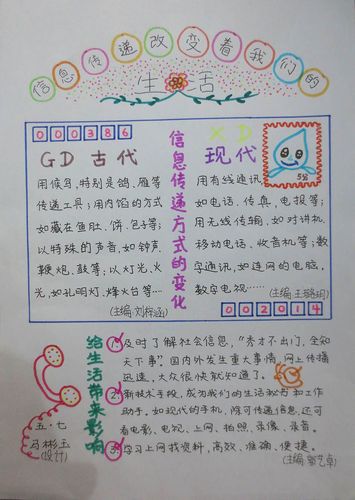 信息传递改变着我们的
生活
000386
GD 古代
用候鸟,特别是鸽、雁等
传递工具;用内馅的方式
如藏在鱼肚、饼、包子等;
以特殊的声音,如钟声、
鞭炮、鼓等;以灯光、火
光,如孔明灯、烽火台等…
(主编:刘梓涵)
信息传递方式的变化
XD
现代
5分
用有线通讯,
如电话、传真、电报等;
用无线传输,如对讲机、
移动电话、收音机等;数
字通讯,如连网的电脑,
数字电视……
(主编:王璐玥)
002014
给生活带来影响
1.及时了解社会信息,“秀才不出门,全知
天下事”。国内外发生重大事情,网上传播
迅速,大众很快就知道了。
2.新技术手段,成为我们的生活秘书和工作
助手。如现代的手机,除可传递信息,还可
看电影、电视、上网、拍照、录像、录音。
3.学习上网找资料,高效、准确、便捷。
(主编:郭艺卓)
五·七
马彬玉
(设计)